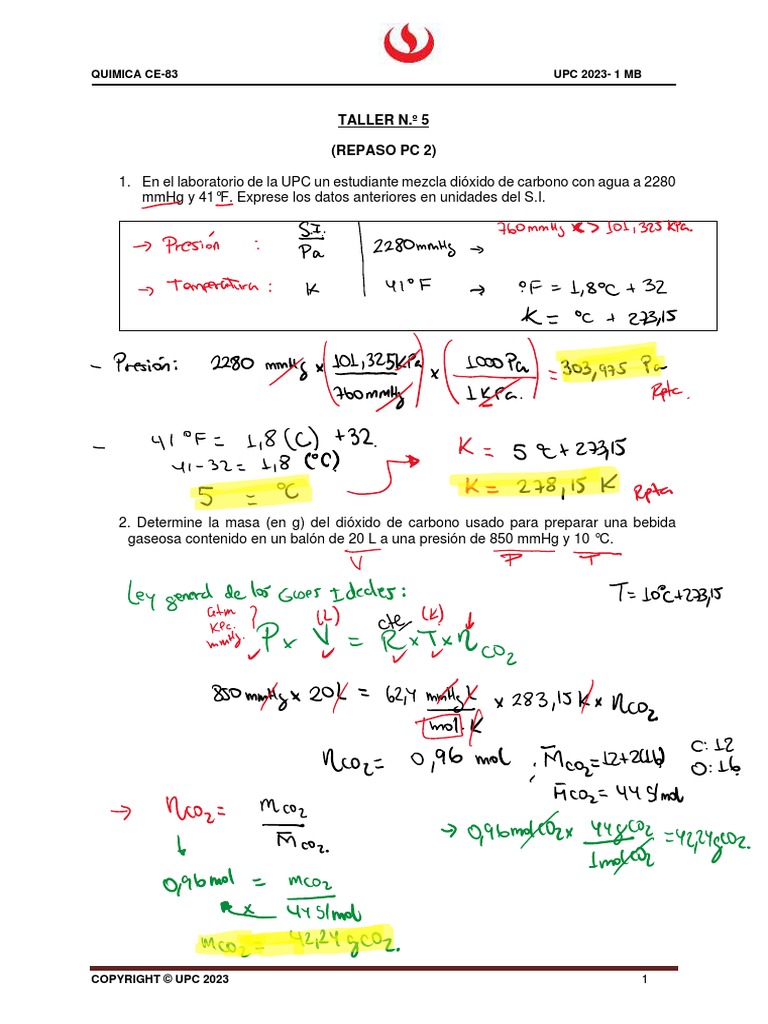 QUIMICA CE-83 UPC 2023- 1 MB
TALLER N.º 5
(REPASO PC 2)
1. En el laboratorio de la UPC un estudiante mezcla dióxido de carbono con agua a 2280
mmHg y 41°F. Exprese los datos anteriores en unidades del S.I.
S.I. 760 mmHg <> 101,325 kPa
→ Presión : Pa 2280 mmHg →
→ Temperatura : K 41°F → °F = 1,8°C + 32
K = °C + 273,15
- Presión: 2280 mmHg × (101,325 kPa / 760 mmHg) × (1000 Pa / 1 kPa) = 303,975 Pa
Rpta.
- 41°F = 1,8 (C) + 32. K = 5°C + 273,15
41-32 = 1,8 (°C)
5 = °C K = 278,15 K Rpta
2. Determine la masa (en g) del dióxido de carbono usado para preparar una bebida
gaseosa contenido en un balón de 20 L a una presión de 850 mmHg y 10 °C.
V P T
Ley general de los Gases Ideales: T = 10°C + 273,15
atm
KPa
mmHg. ? (L) cte (K)
P × V = R × T × n CO2
850 mmHg × 20 L = 62,4 mmHg L / mol. K × 283,15 K × nCO2
nCO2 = 0,96 mol ; M̄CO2 = 12+2(16) C: 12
M̄CO2 = 44 g/mol O: 16
→ nCO2 = mCO2 / M̄CO2. → 0,96 mol CO2 × 44 g CO2 / 1 mol CO2 = 42,24 g CO2
0,96 mol = mCO2 / 44 g/mol
mCO2 = 42,24 g CO2.
COPYRIGHT © UPC 2023 1